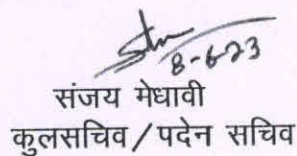 8-6-23
संजय मेधावी
कुलसचिव/पदेन सचिव